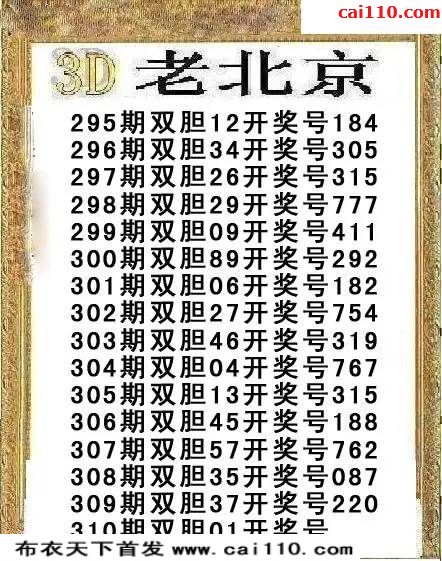 cai110.com
3D 老北京
295期双胆12开奖号184
296期双胆34开奖号305
297期双胆26开奖号315
298期双胆29开奖号777
299期双胆09开奖号411
300期双胆89开奖号292
301期双胆06开奖号182
302期双胆27开奖号754
303期双胆46开奖号319
304期双胆04开奖号767
305期双胆13开奖号315
306期双胆45开奖号188
307期双胆57开奖号762
308期双胆35开奖号087
309期双胆37开奖号220
310期双胆01开奖号
布衣天下首发 www.cai110.com